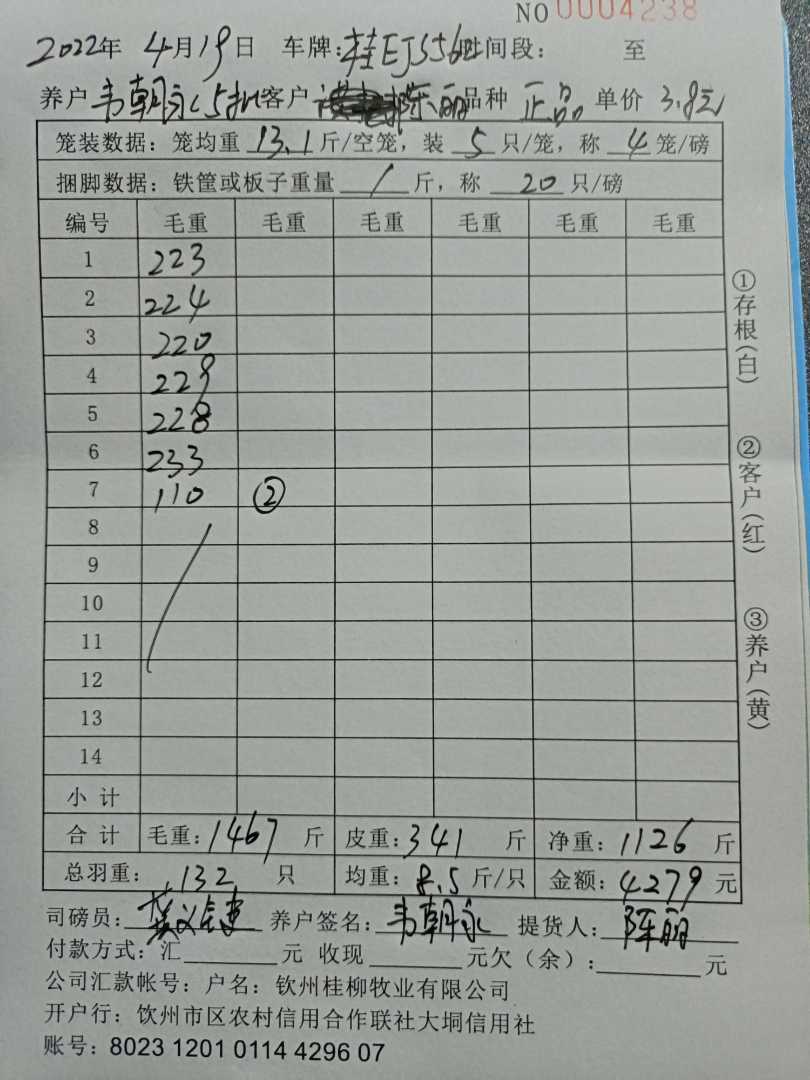 NO 0004238
2022年 4月19日 车牌:桂EJ556 时间段: 至
养户 韦朝永(5批 客户 陈丽 品种 正品 单价 3.8元
笼装数据:笼均重 13.1 斤/空笼,装 5 只/笼,称 4 笼/磅
捆脚数据:铁筐或板子重量 / 斤,称 20 只/磅
编号 毛重 毛重 毛重 毛重 毛重 毛重
1 223
2 224
3 220
4 229
5 228
6 233
7 110 ②
8
9
10
11
12
13
14
小计
合计 毛重:1467 斤 皮重:341 斤 净重:1126 斤
总羽重: 132 只 均重:8.5 斤/只 金额:4279 元
司磅员: 养户签名:韦朝永 提货人:陈丽
付款方式:汇 元 收现 元欠(余): 元
公司汇款帐号:户名:钦州桂柳牧业有限公司
开户行:饮州市区农村信用合作联社大垌信用社
账号:8023 1201 0114 4296 07
①存根(白)
②客户(红)
③养户(黄)